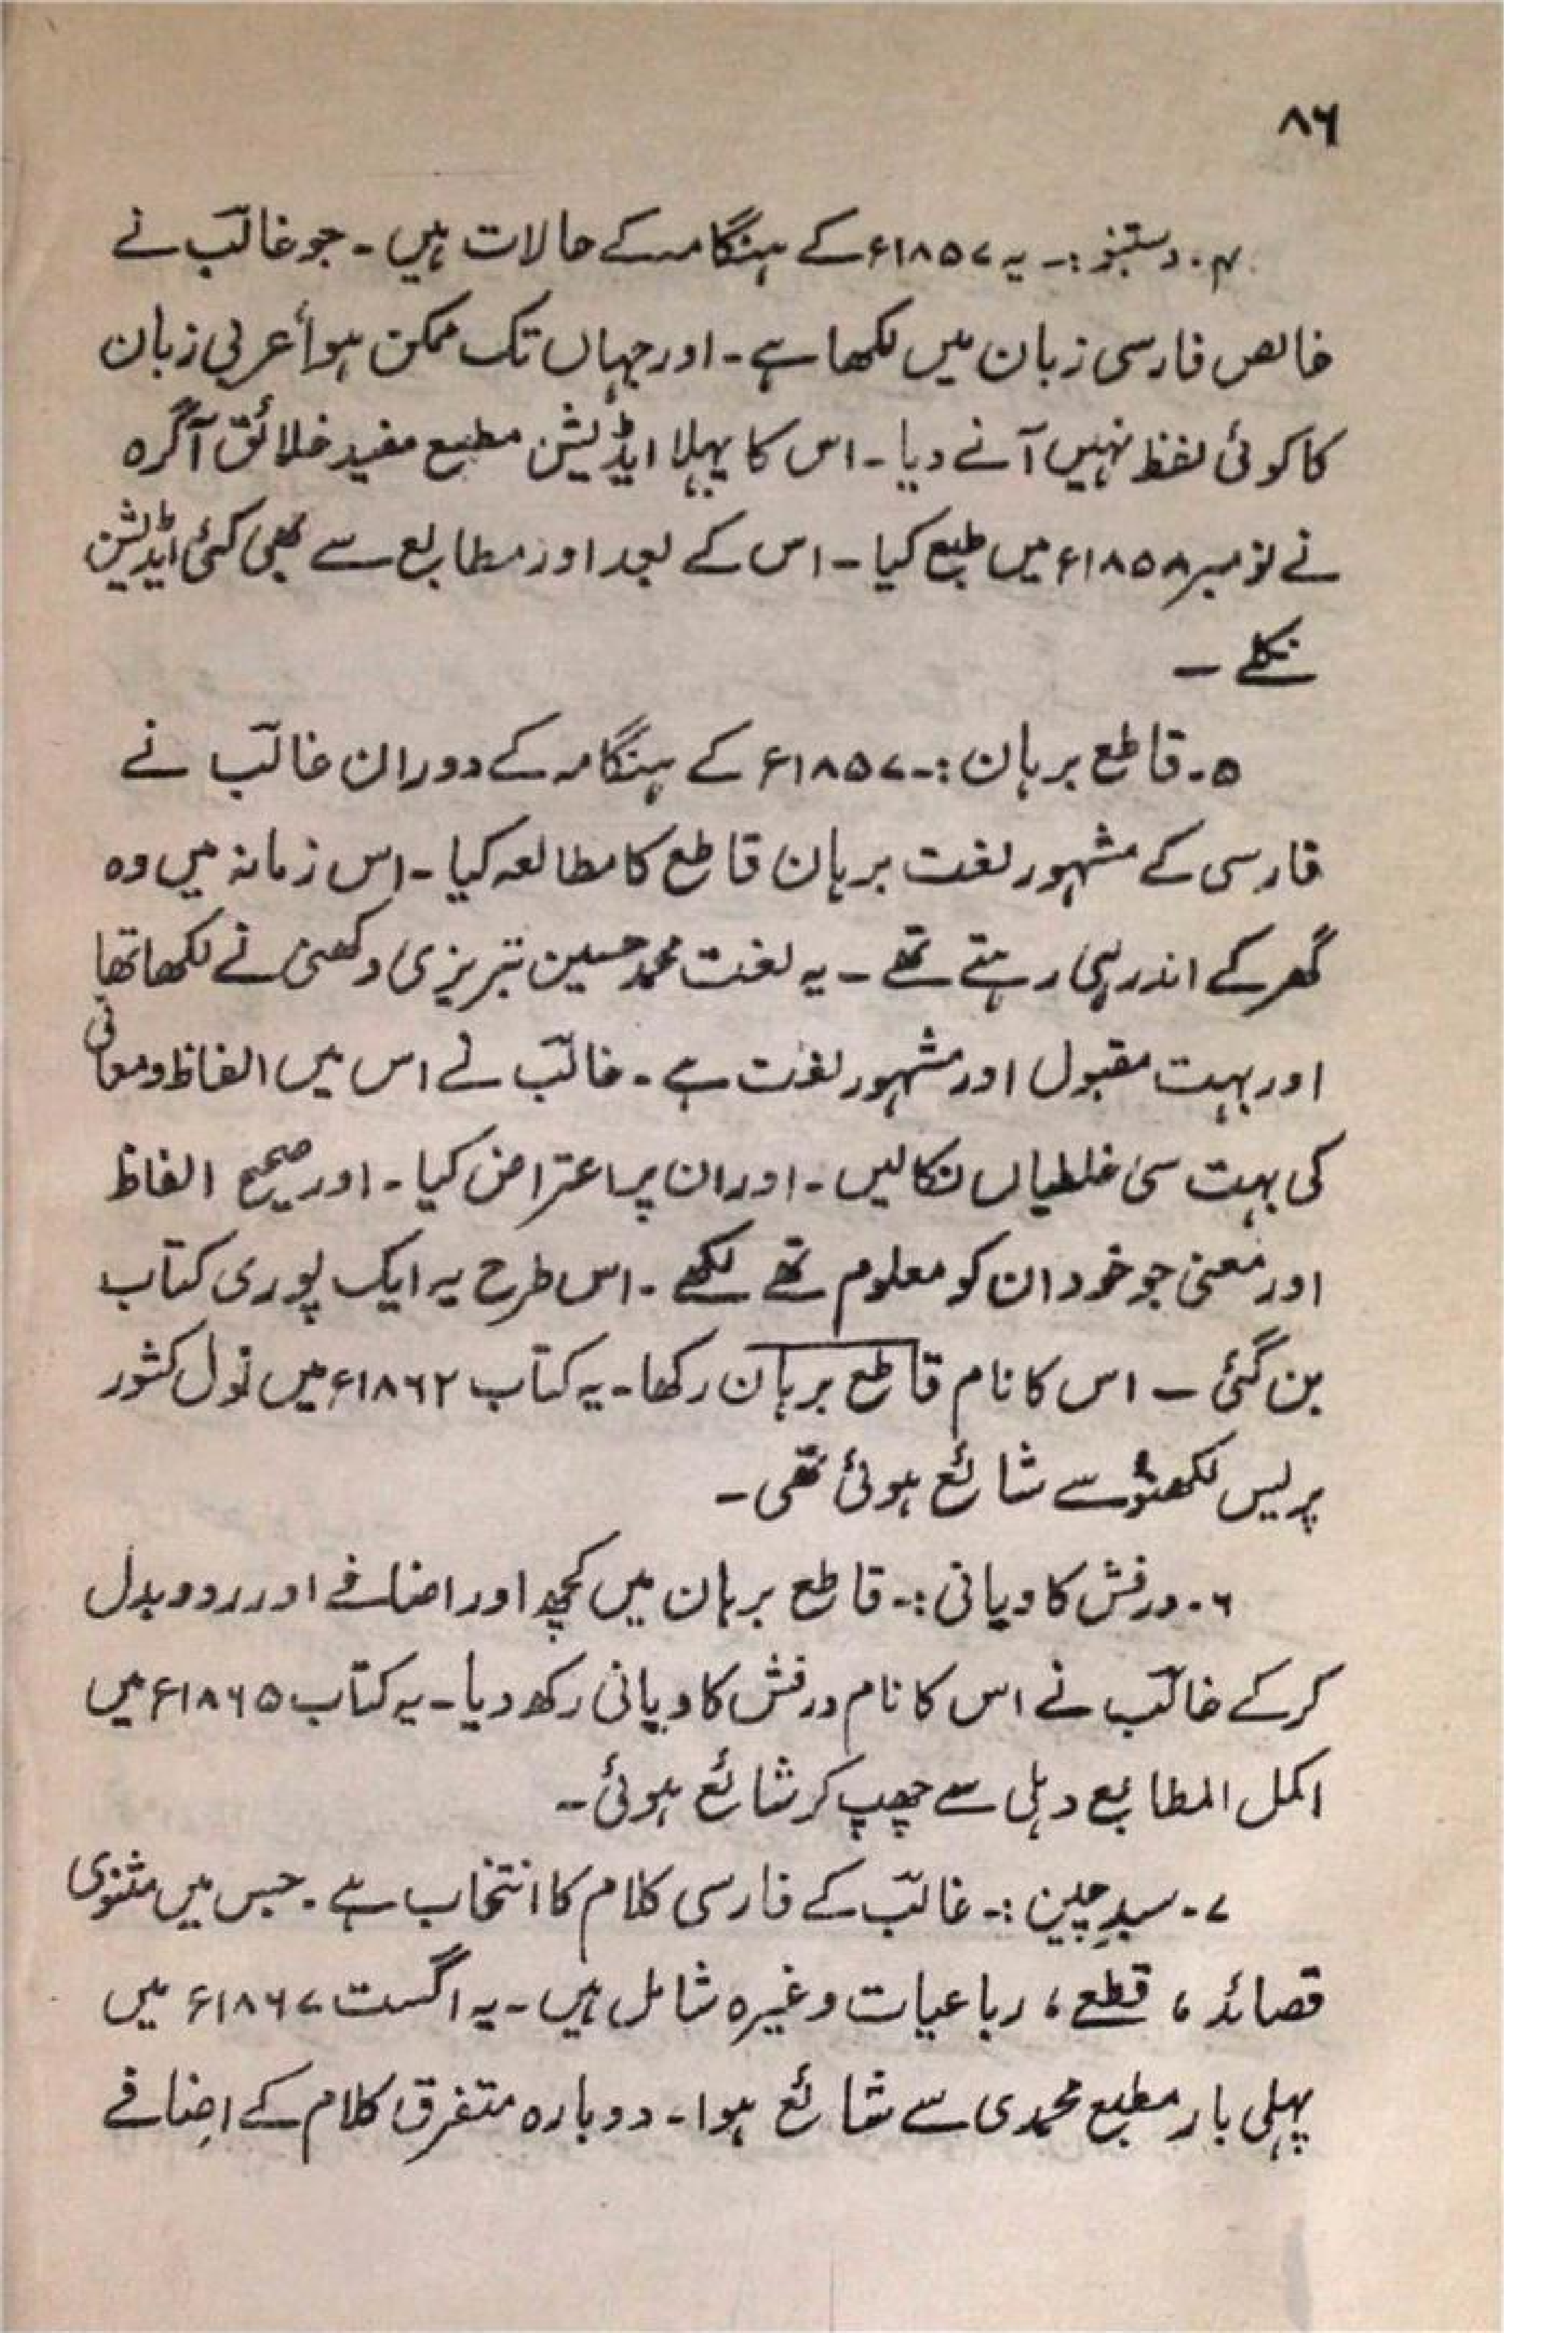 ۸۶
۴۔ دستنبو :۔ یہ ۱۸۵۷ء کے ہنگامہ کے حالات ہیں ۔ جو غالبؔ نے
خالص فارسی زبان میں لکھا ہے ۔ اور جہاں تک ممکن ہوا عربی زبان
کا کوئی لفظ نہیں آنے دیا ۔ اس کا پہلا ایڈیشن مطبع مفید خلائق آگرہ
نے نومبر ۱۸۵۸ء میں طبع کیا ۔ اس کے بعد اور مطابع سے بھی کئی ایڈیشن
نکلے ۔
۵۔ قاطع برہان :۔ ۱۸۵۷ء کے ہنگامہ کے دوران غالبؔ نے
فارسی کے مشہور لغت برہان قاطع کا مطالعہ کیا ۔ اس زمانہ میں وہ
گھر کے اندر ہی رہتے تھے ۔ یہ لغت محمد حسین تبریزی دکھنی نے لکھا تھا
اور بہت مقبول اور مشہور لغت ہے ۔ غالبؔ نے اس میں الفاظ و معانی
کی بہت سی غلطیاں نکالیں ۔ اور ان پر اعتراض کیا ۔ اور صحیح الفاظ
اور معنی جو خود ان کو معلوم تھے لکھے ۔ اس طرح یہ ایک پوری کتاب
بن گئی ۔ اس کا نام قاطع برہان رکھا ۔ یہ کتاب ۱۸۶۲ء میں نول کشور
پریس لکھنؤ سے شائع ہوئی تھی ۔
۶۔ درفش کاویانی :۔ قاطع برہان میں کچھ اور اضافے اور ردو بدل
کرکے غالبؔ نے اس کا نام درفش کاویانی رکھ دیا ۔ یہ کتاب ۱۸۶۵ء میں
اکمل المطابع دہلی سے چھپ کر شائع ہوئی ۔
۷۔ سبدِ چین :۔ غالبؔ کے فارسی کلام کا انتخاب ہے ۔ جس میں مثنوی
قصائد ، قطعے ، رباعیات وغیرہ شامل ہیں ۔ یہ اگست ۱۸۶۷ء میں
پہلی بار مطبع محمدی سے شائع ہوا ۔ دوبارہ متفرق کلام کے اضافے